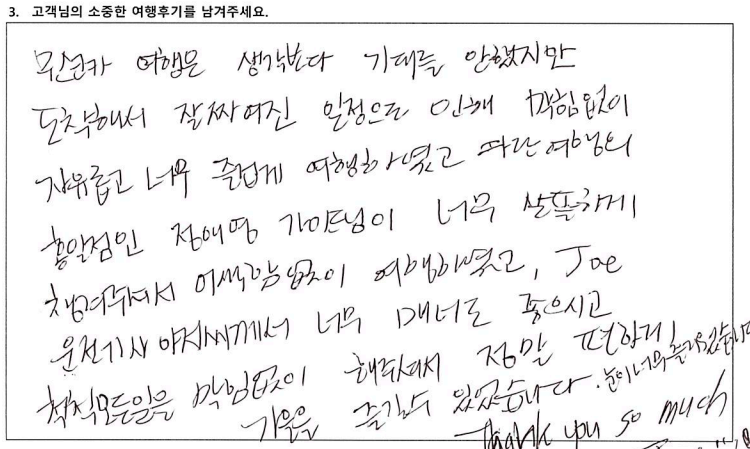 3. 고객님의 소중한 여행후기를 남겨주세요.
여행은 생각보다 기대를 안했지만
도착해서 잘짜여진 일정으로 인해 막힘없이
자유롭고 너무 즐겁게 여행하였고 여행의
홍일점인 정애영 가이드님이 너무 살뜰하게
챙겨주셔서 어색함없이 여행하였고, Joe
운전기사 아저씨께서 너무 매너도 좋으시고
척척모든일을 막힘없이 해주셔서 정말 편하게
가을을 즐길수 있었습니다. 눈이너무즐거웠습니다
Thank you so much